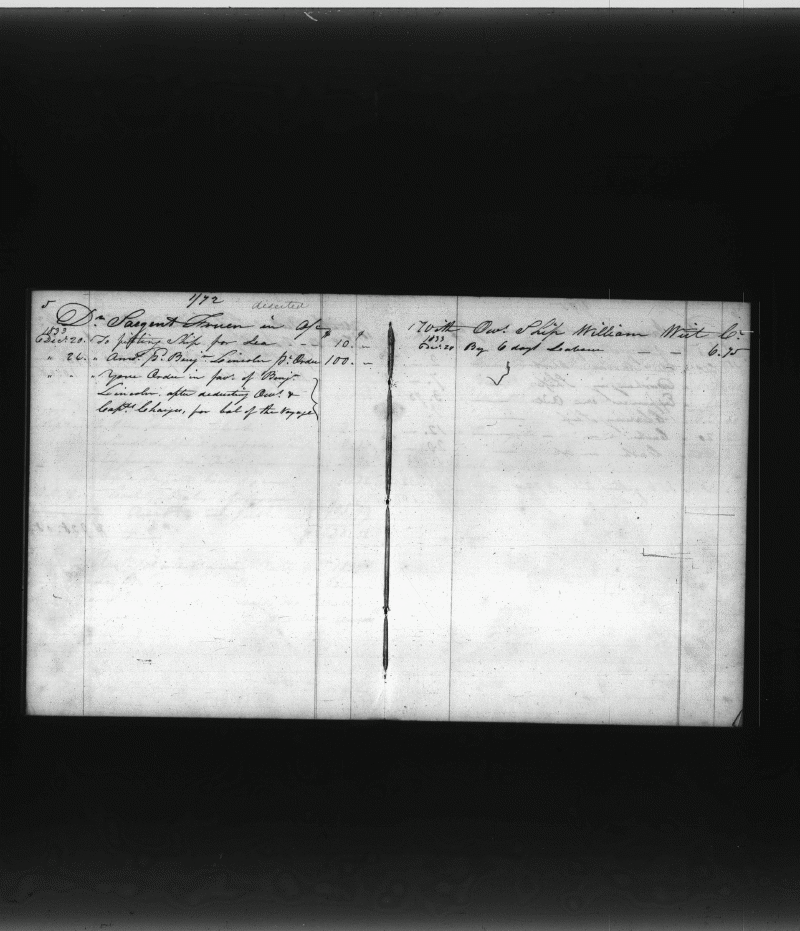 5
1/72 deserted
Dr Sargent Truen in a/c
1833
Decr 20. To fitting Ship for Sea - - $ 10. -
" 26. " Amt Pd Benjn Lincoln Pr Order 100. -
" " " Your Order in favr of Benjn
Lincoln after deducting Ows &
Capts Charges, for bal of the Voyage
with Ows Ship William Wirt Cr
1833
Decr 20 By 6 days Labour - - 6.75